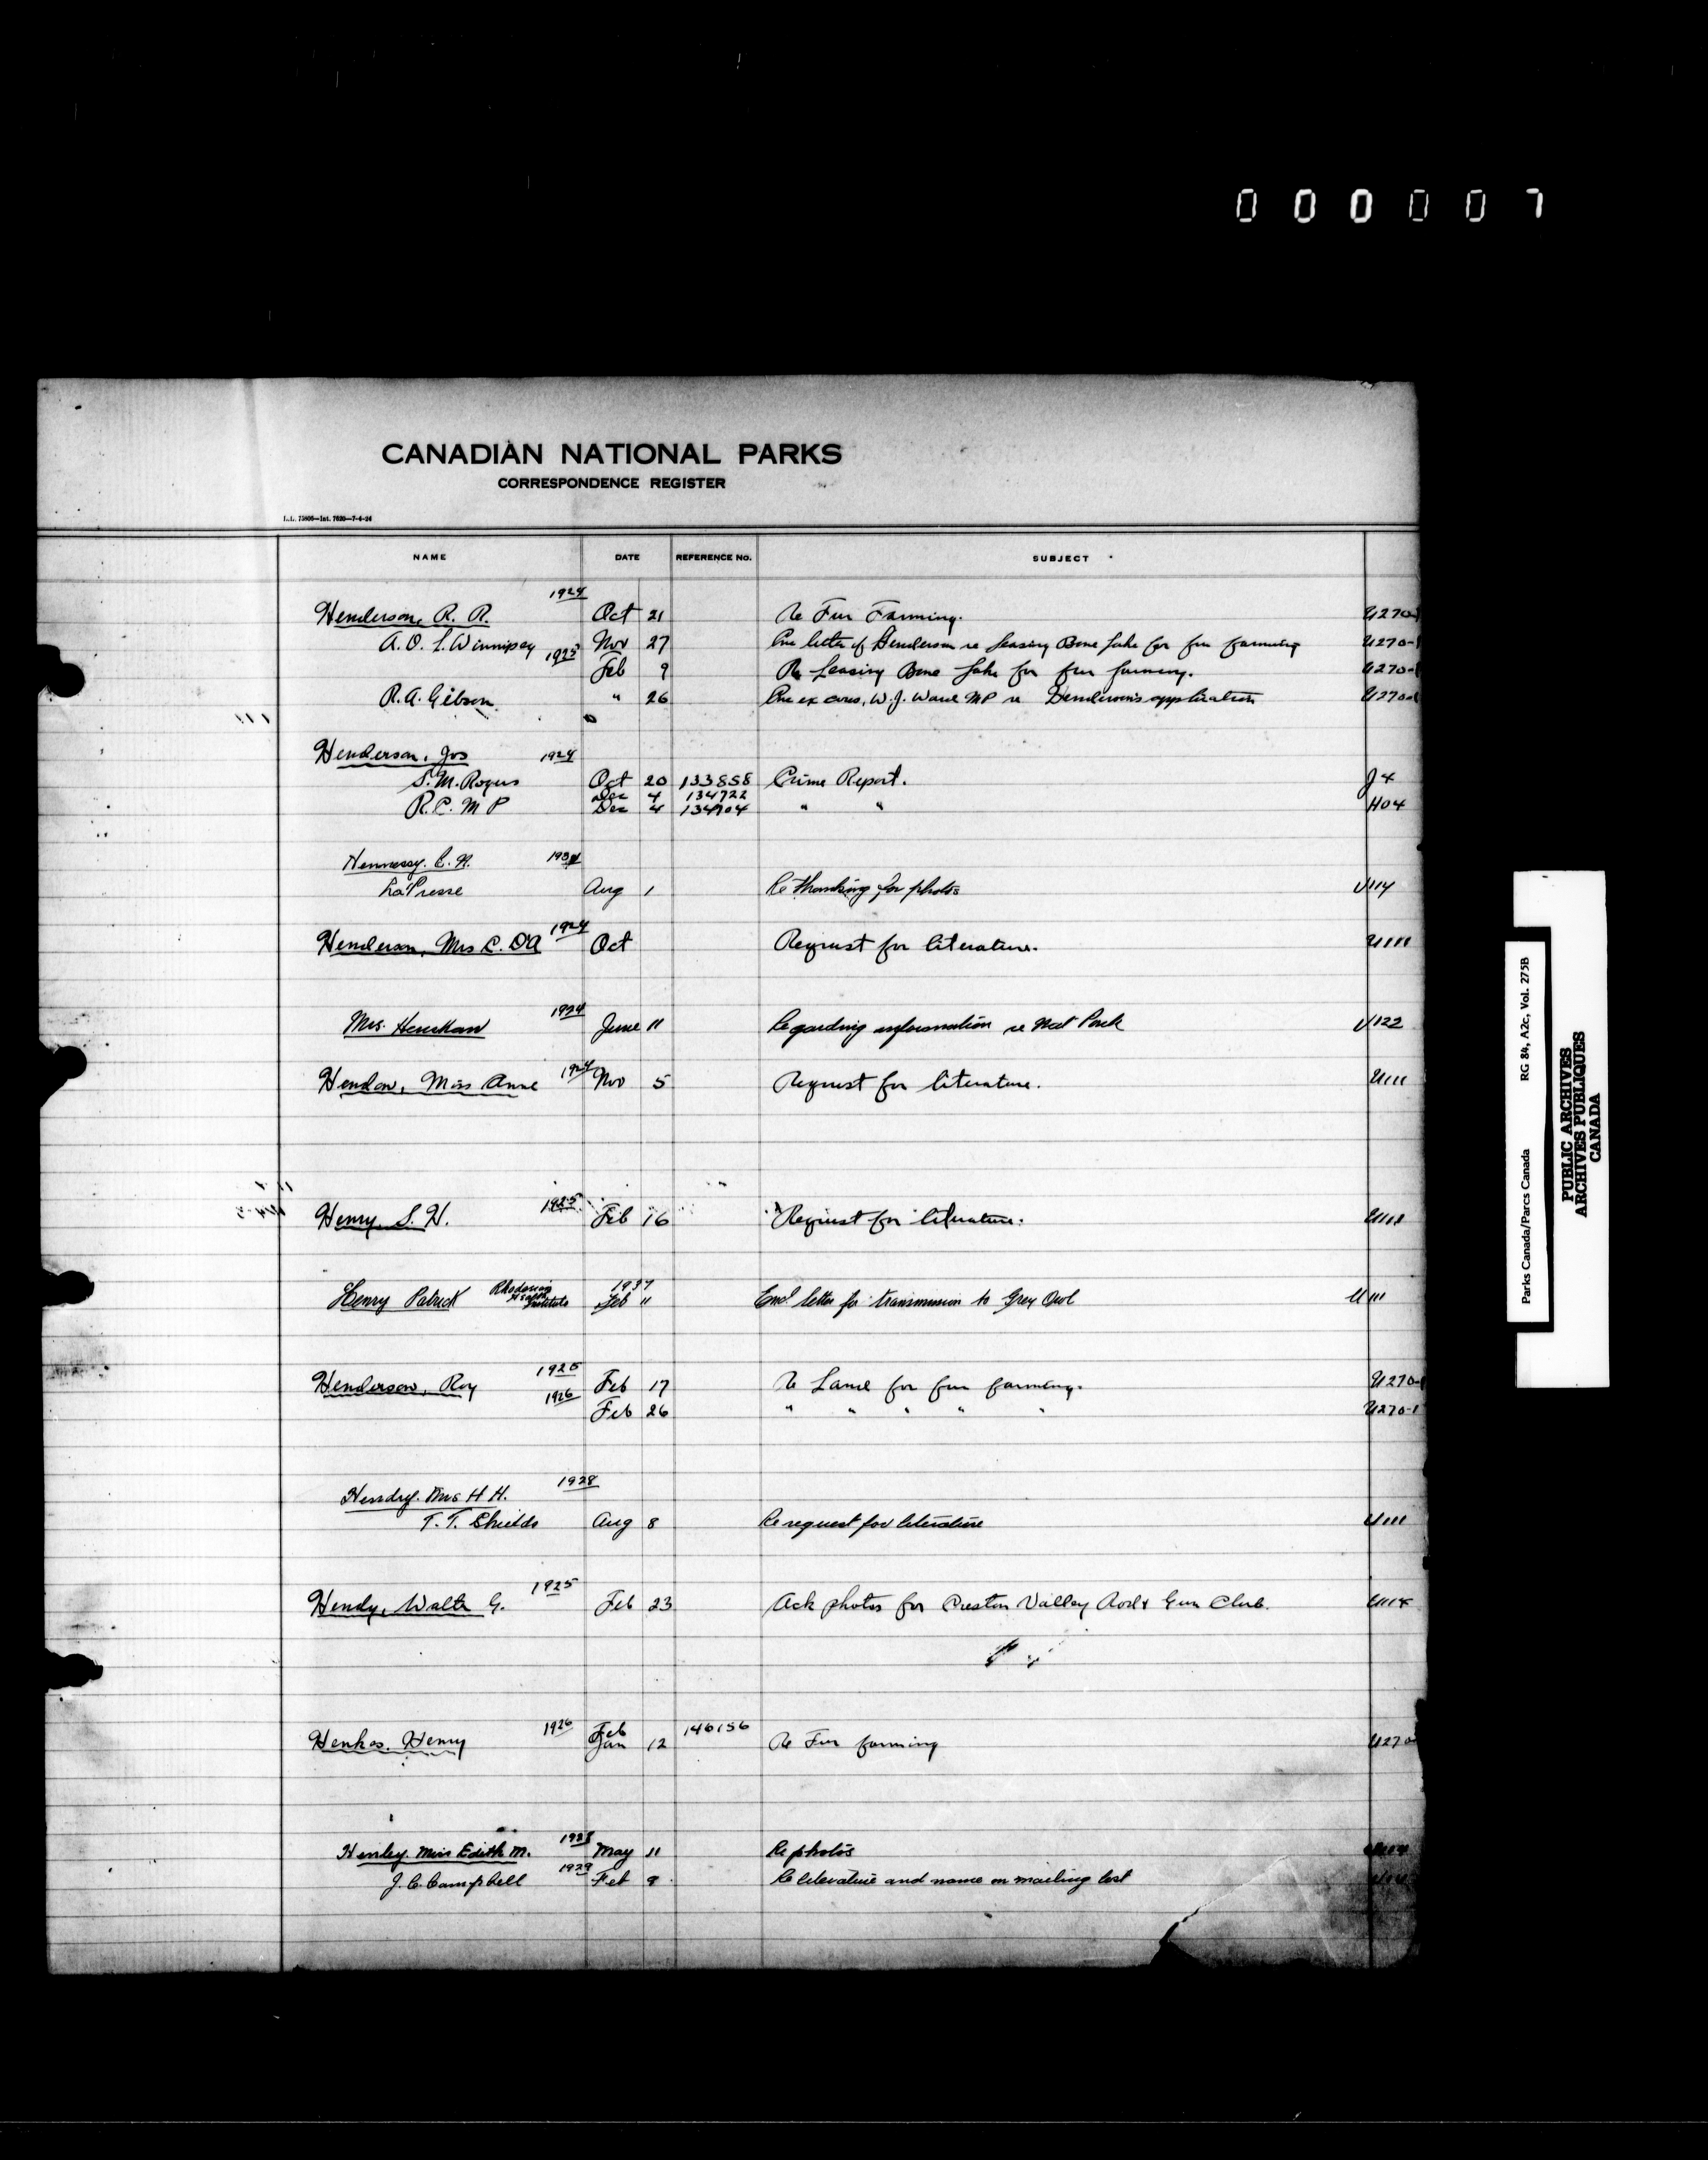 0 0 0 0 0 7
CANADIAN NATIONAL PARKS
CORRESPONDENCE REGISTER
L.L. 75805—Int. 7620—7-4-24
NAME DATE REFERENCE No. SUBJECT
1924
Henderson, R. R. Oct 21 Re Fur Farming. U270-1
A. O. L. Winnipeg Nov 27 Enc letter of Henderson re leasing Bone Lake for fur farming U270-1
1925
Feb 9 Re Leasing Bone Lake for fur farming. U270-1
R. A. Gibson " 26 Enc ex cores, W. J. Ward MP re Henderson's application U270-1
Henderson, Jos 1924
S. M. Rogers Oct 20 133858 Crime Report. J4
Dec 4 134722
R. C. M P Dec 4 134704 " " H04
Hennessy. C. N.
La Presse Aug 1 Re thanking for photos U114
1924
Henderson, Mrs C. O'A Oct Request for literature. U111
1924
Mrs. June 11 Regarding information re Nat Park U122
Miss Anne 1924 Nov 5 Request for literature. U111
1925
Henry, S. H. Feb 16 Request for literature. U111
1937
Henry Patrick Institute Feb 11 Encl letter for transmission to Grey Owl U111
1925
Henderson, Roy Feb 17 Re Land for fur farming. U270-1
1926
Feb 26 " " " " " U270-1
1928
Hendry. Mrs H H.
T. T. Shields Aug 8 Re request for literature U111
1925
Hendy, Walter G. Feb 23 Ack photos for Preston Valley Rod & Gun Club. U114
1926 Feb 146156
Henkes, Henry Jan 12 Re Fur farming U270
1928
Henley. Miss Edith M. May 11 Re photos
1929
J. C. Campbell Feb 9 Re literature and name on mailing list
Parks Canada/Parcs Canada RG 84, A2c, Vol. 275B
PUBLIC ARCHIVES
ARCHIVES PUBLIQUES
CANADA